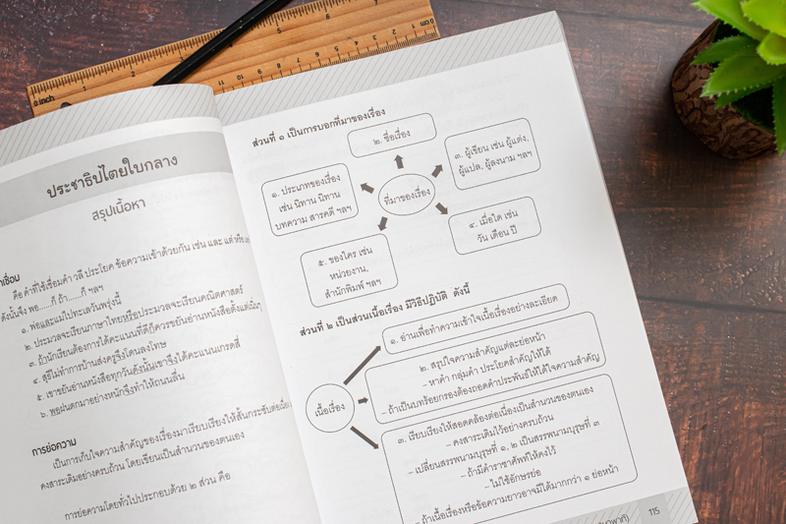 inch
1
2
5
6
7
ประชาธิปไตยใบกลาง
สรุปเนื้อหา
คือ คำที่ใช้เชื่อมคำ วลี ประโยค ข้อความเข้าด้วยกัน เช่น และ แต่ หรือ
ดังนั้นจึง พอ.....ก็ ถ้า.....ก็ ฯลฯ
๑. พ่อและแม่ไปทะเลวันพรุ่งนี้
๒. ประมวลจะเรียนภาษาไทยหรือประมวลจะเรียนคณิตศาสตร์
๓. ถ้านักเรียนต้องการได้คะแนนที่ดีก็ควรขยันอ่านหนังสือตั้งแต่เนิ่นๆ
๔. สุธีไม่ทำการบ้านส่งครูจึงโดนลงโทษ
๕. เขาขยันอ่านหนังสือทุกวันดังนั้นเขาจึงได้คะแนนเกรดสี่
๖. พอฝนตกมาอย่างหนักจึงทำให้ถนนลื่น
การย่อความ
เป็นการเก็บใจความสำคัญของเรื่องมาเรียบเรียงให้สั้นกระชับต่อเนื่อง
คงสาระเดิมอย่างครบถ้วน โดยเขียนเป็นสำนวนของตนเอง
การย่อความโดยทั่วไปประกอบด้วย ๒ ส่วน คือ
ส่วนที่ ๑ เป็นการบอกที่มาของเรื่อง
๒. ชื่อเรื่อง
๓. ผู้เขียน เช่น ผู้แต่ง,
ผู้แปล, ผู้ลงนาม ฯลฯ
๑. ประเภทของเรื่อง
เช่น นิทาน นิทาน
บทความ สารคดี ฯลฯ
ที่มาของเรื่อง
๔. เมื่อใด เช่น
วัน เดือน ปี
๕. ของใคร เช่น
หน่วยงาน,
สำนักพิมพ์ ฯลฯ
ส่วนที่ ๒ เป็นส่วนเนื้อเรื่อง มีวิธีปฏิบัติ ดังนี้
๑. อ่านเพื่อทำความเข้าใจเนื้อเรื่องอย่างละเอียด
๒. สรุปใจความสำคัญแต่ละย่อหน้า
– หาคำ กลุ่มคำ ประโยคสำคัญให้ได้
– ถ้าเป็นบทร้อยกรองต้องถอดคำประพันธ์ให้ได้ใจความสำคัญ
เนื้อเรื่อง
๓. เรียบเรียงให้สอดคล้องต่อเนื่องเป็นสำนวนของตนเอง
– คงสาระเดิมไว้อย่างครบถ้วน
– เปลี่ยนสรรพนามบุรุษที่ ๑, ๒ เป็นสรรพนามบุรุษที่ ๓
– ถ้ามีคำราชาศัพท์ให้คงไว้
– ไม่ใช้อักษรย่อ
– ถ้าเนื้อเรื่องหรือข้อความยาวอาจมีได้มากกว่า ๑ ย่อหน้า
115